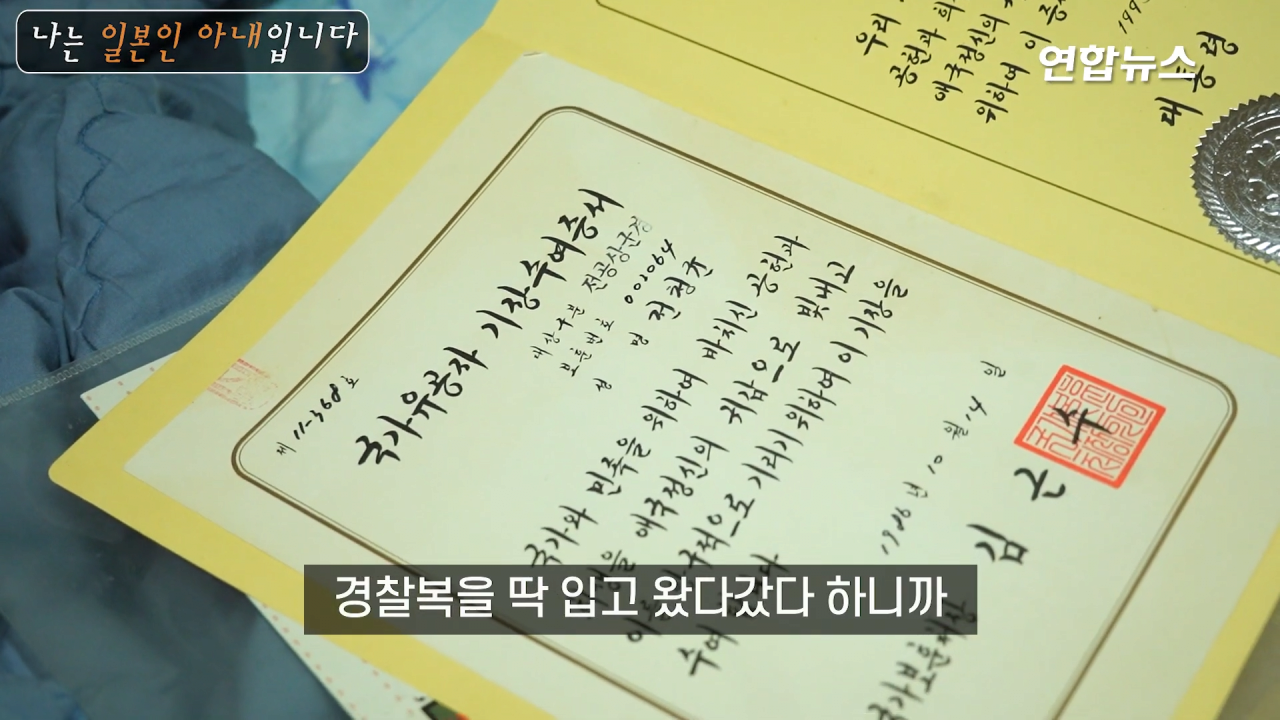 나는 일본인 아내입니다
연합뉴스
우리
공헌과 의
애국정신의
위하여 이 증
대통령
제 11-368 호
국가유공자 기장수여증서
대상구분 전공상군경
보훈번호 002064
성 명 전청규
국가와 민족을 위하여 바치신 공헌과
애국정신의 귀감으로 빛내고
이를 구적으로 기리기 위하여 이 기장을
수여
1986년 10월 14일
국가보훈처장 김근수
경찰복을 딱 입고 왔다갔다 하니까